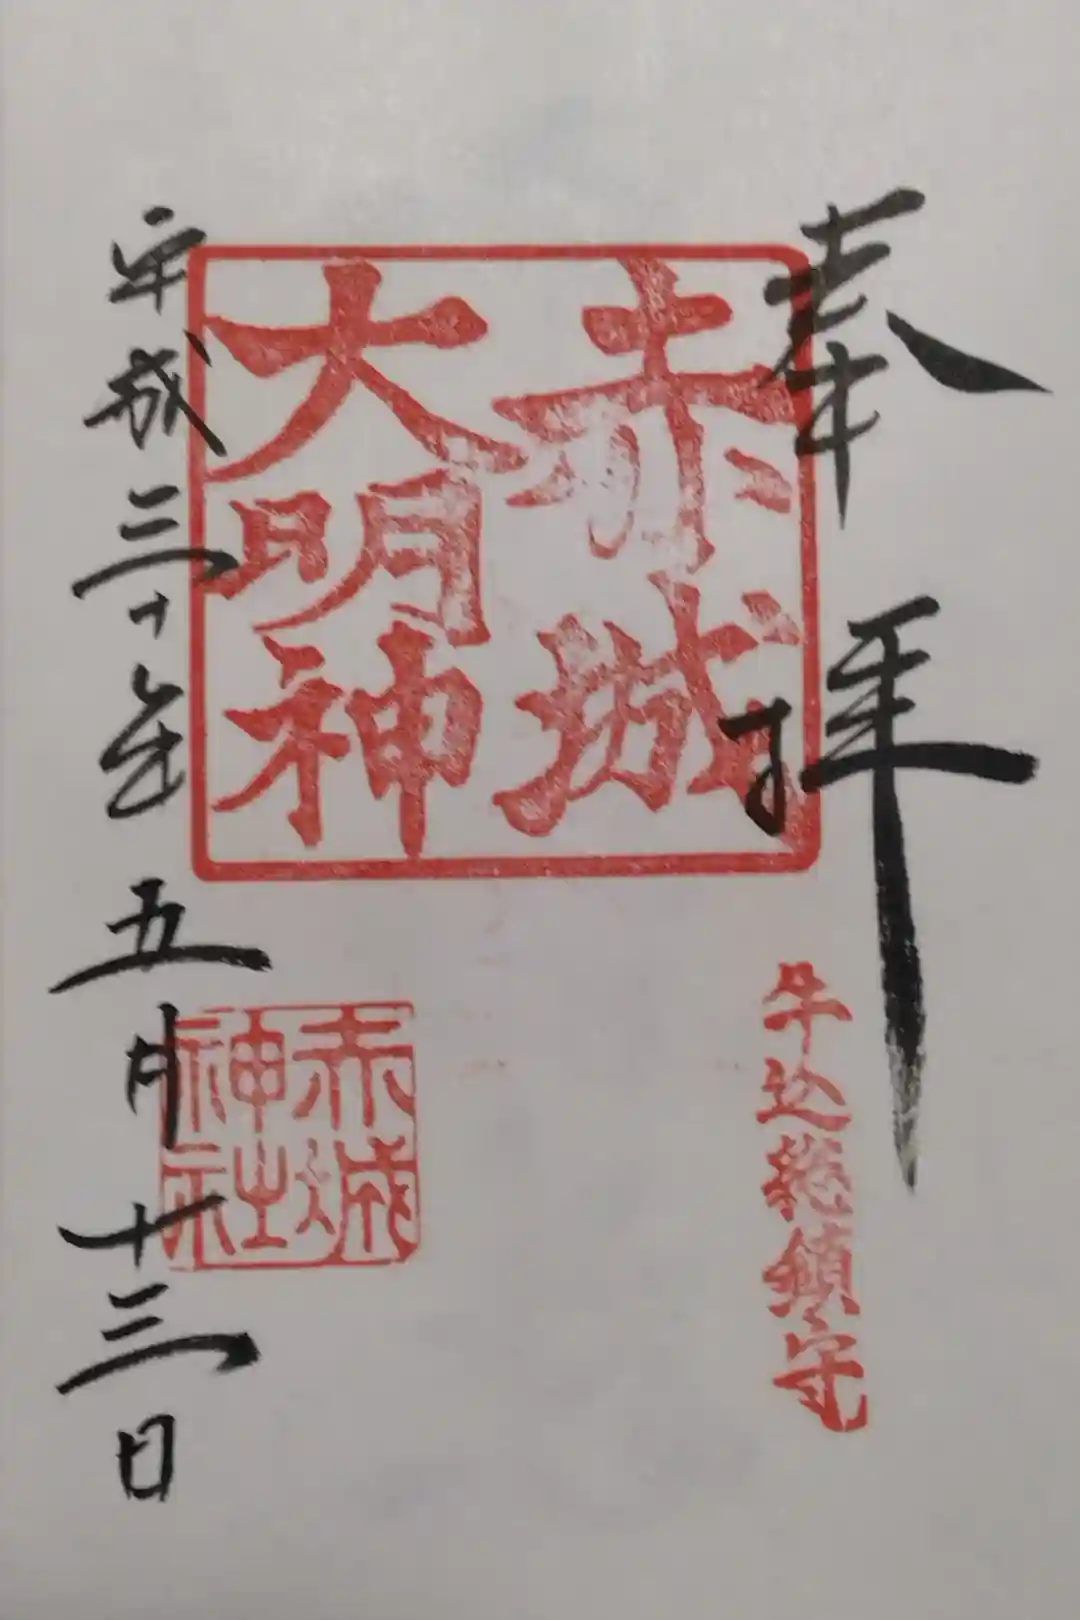 奉拝
牛込総鎮守
赤城
大明神
赤城
神社
平成三十年五月十三日